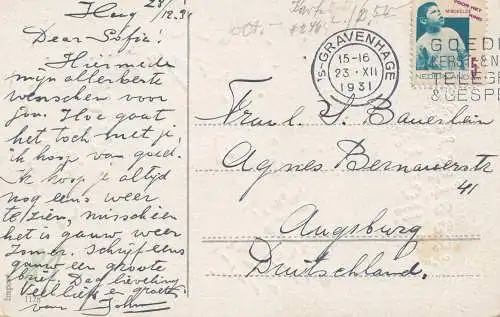 Haag 23/12.31
Dear Sofia!
Hiermede
mijn allerbeste
wenschen voor
jou. Hoe gaat
het toch met je
ik hoop van goed.
Ik hoop je altijd
nog eens weer
te zien, misschien
het is gauw weer
Zomer. Schrijf eens
gauw een groote
brief. Dag lieveling
Veel liefs en groeten
van John
1178
's-GRAVENHAGE
15-16
23.XII
1931
VOOR HET
KIND
5
NEDERLAND
GOEDE
KERST-& N
TELEG
& GESPR
Fraul. S. Bauerlein
Agnes Bernauerstr
41
Augsburg
Duitschland.